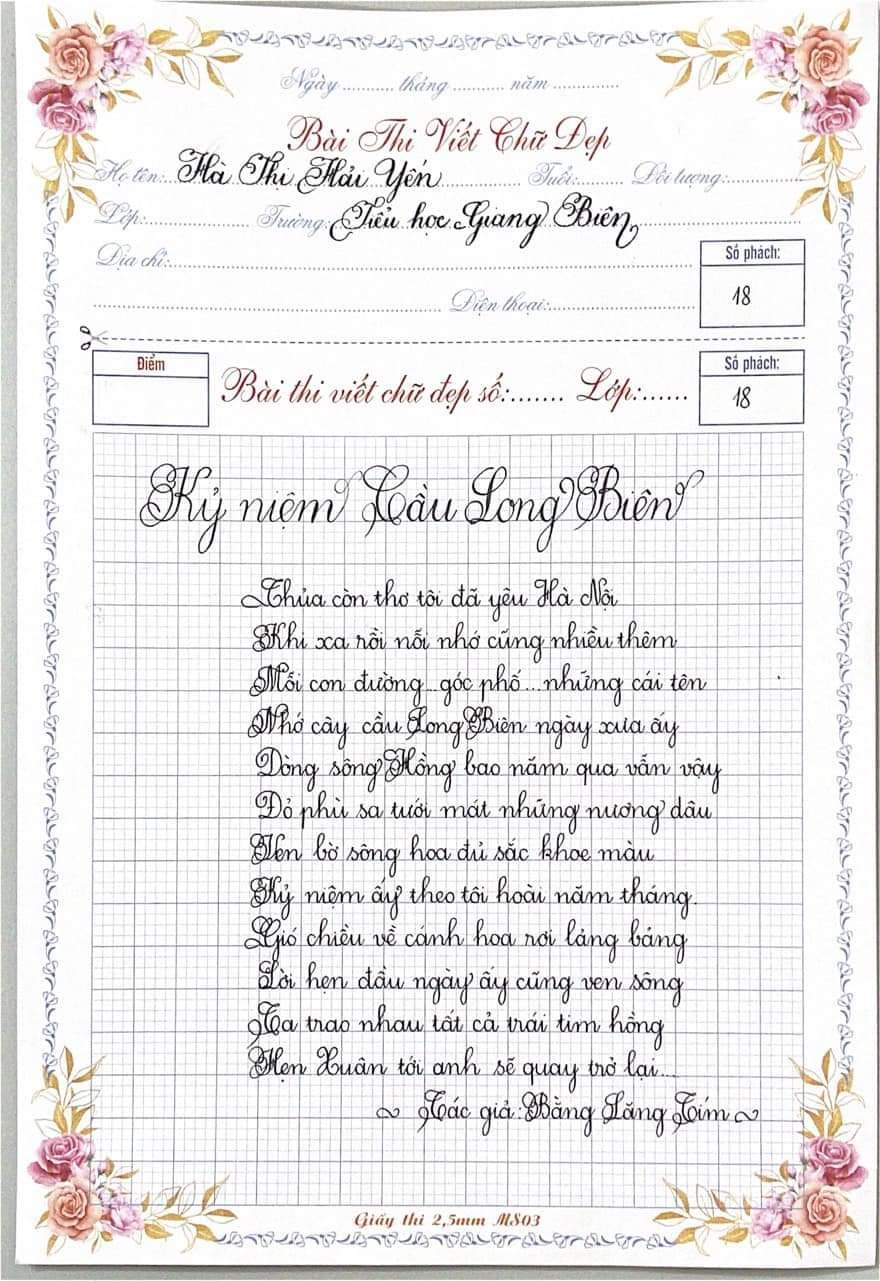 Ngày .......... tháng .......... năm .............
Bài Thi Viết Chữ Đẹp
Họ tên:.. Hà Thị Hải Yến ............ Tuổi:......... Đối tượng:..............
Lớp:..................... Trường: Tiểu học Giang Biên
Địa chỉ:..........................................
Số phách:
18
.......................................... Điện thoại:..............................
Điểm
Bài thi viết chữ đẹp số:....... Lớp:......
Số phách:
18
Kỷ niệm Cầu Long Biên
Thủa còn thơ tôi đã yêu Hà Nội
Khi xa rồi nỗi nhớ cũng nhiều thêm
Mỗi con đường...góc phố...những cái tên
Nhớ cây cầu Long Biên ngày xưa ấy
Dòng sông Hồng bao năm qua vẫn vậy
Đỏ phù sa tưới mát những nương dâu
Ven bờ sông hoa đủ sắc khoe màu
Kỷ niệm ấy theo tôi hoài năm tháng.
Gió chiều về cánh hoa rơi lảng bảng
Lời hẹn đầu ngày ấy cũng ven sông
Ta trao nhau tất cả trái tim hồng
Hẹn Xuân tới anh sẽ quay trở lại...
Tác giả: Bằng Lăng Tím
Giấy thi 2,5mm MS03